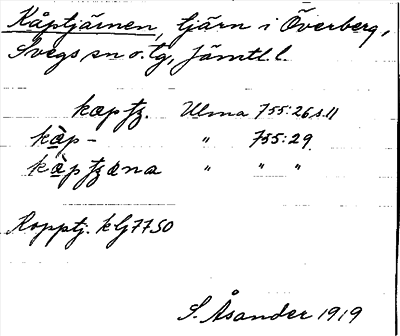 Kåptjärnen, tjärn i Överberg,
Svegs sn o. tg, Jämtl. l.
kæptz. Ulma 755:26 s. 11
kæ̀p- " 755:29.
kæ̀ptzæna " " "
Kopptj. klj 7750
S. Åsander 1919